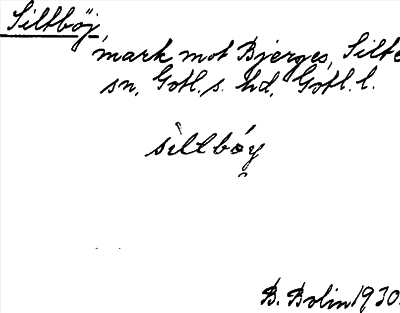 Siltböj,
mark mot Bjerges, Silte
sn, Gotl. s. hd, Gotl. l.
siltbóy
B. Bolin 1930.